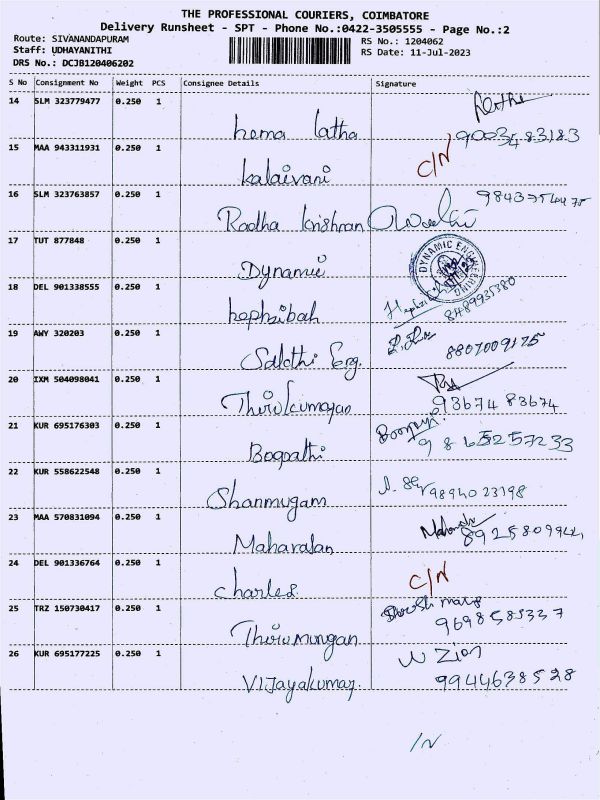 THE PROFESSIONAL COURIERS, COIMBATORE
Delivery Runsheet - SPT - Phone No.:0422-3505555 - Page No.:2
Route: SIVANANDAPURAM RS No.: 1204062
Staff: UDHAYANITHI RS Date: 11-Jul-2023
DRS No.: DCJB120406202
S No Consignment No Weight PCS Consignee Details Signature
14 SLM 323779477 0.250 1
hema latha 9003483183
15 MAA 943311931 0.250 1 C/N
kalaivani
16 SLM 323763857 0.250 1
Radha krishnan
17 TUT 877848 0.250 1 DYNAMIC ENGINEERING
Dynamic
18 DEL 901338555 0.250 1
hephzibah 8489935380
19 AWY 320203 0.250 1
Sakthi Erg. 8807009175
20 IXM 504098041 0.250 1
Thirukumaran 9367483674
21 KUR 695176303 0.250 1
Boopathi 9865257233
22 KUR 558622548 0.250 1
Shanmugam 9894023198
23 MAA 570831094 0.250 1
Maharalan 8925809944
24 DEL 901336764 0.250 1 C/N
charles
25 TRZ 150730417 0.250 1
Thirumurgan 9698585337
26 KUR 695177225 0.250 1
VIJayakumar 9944638528
/N